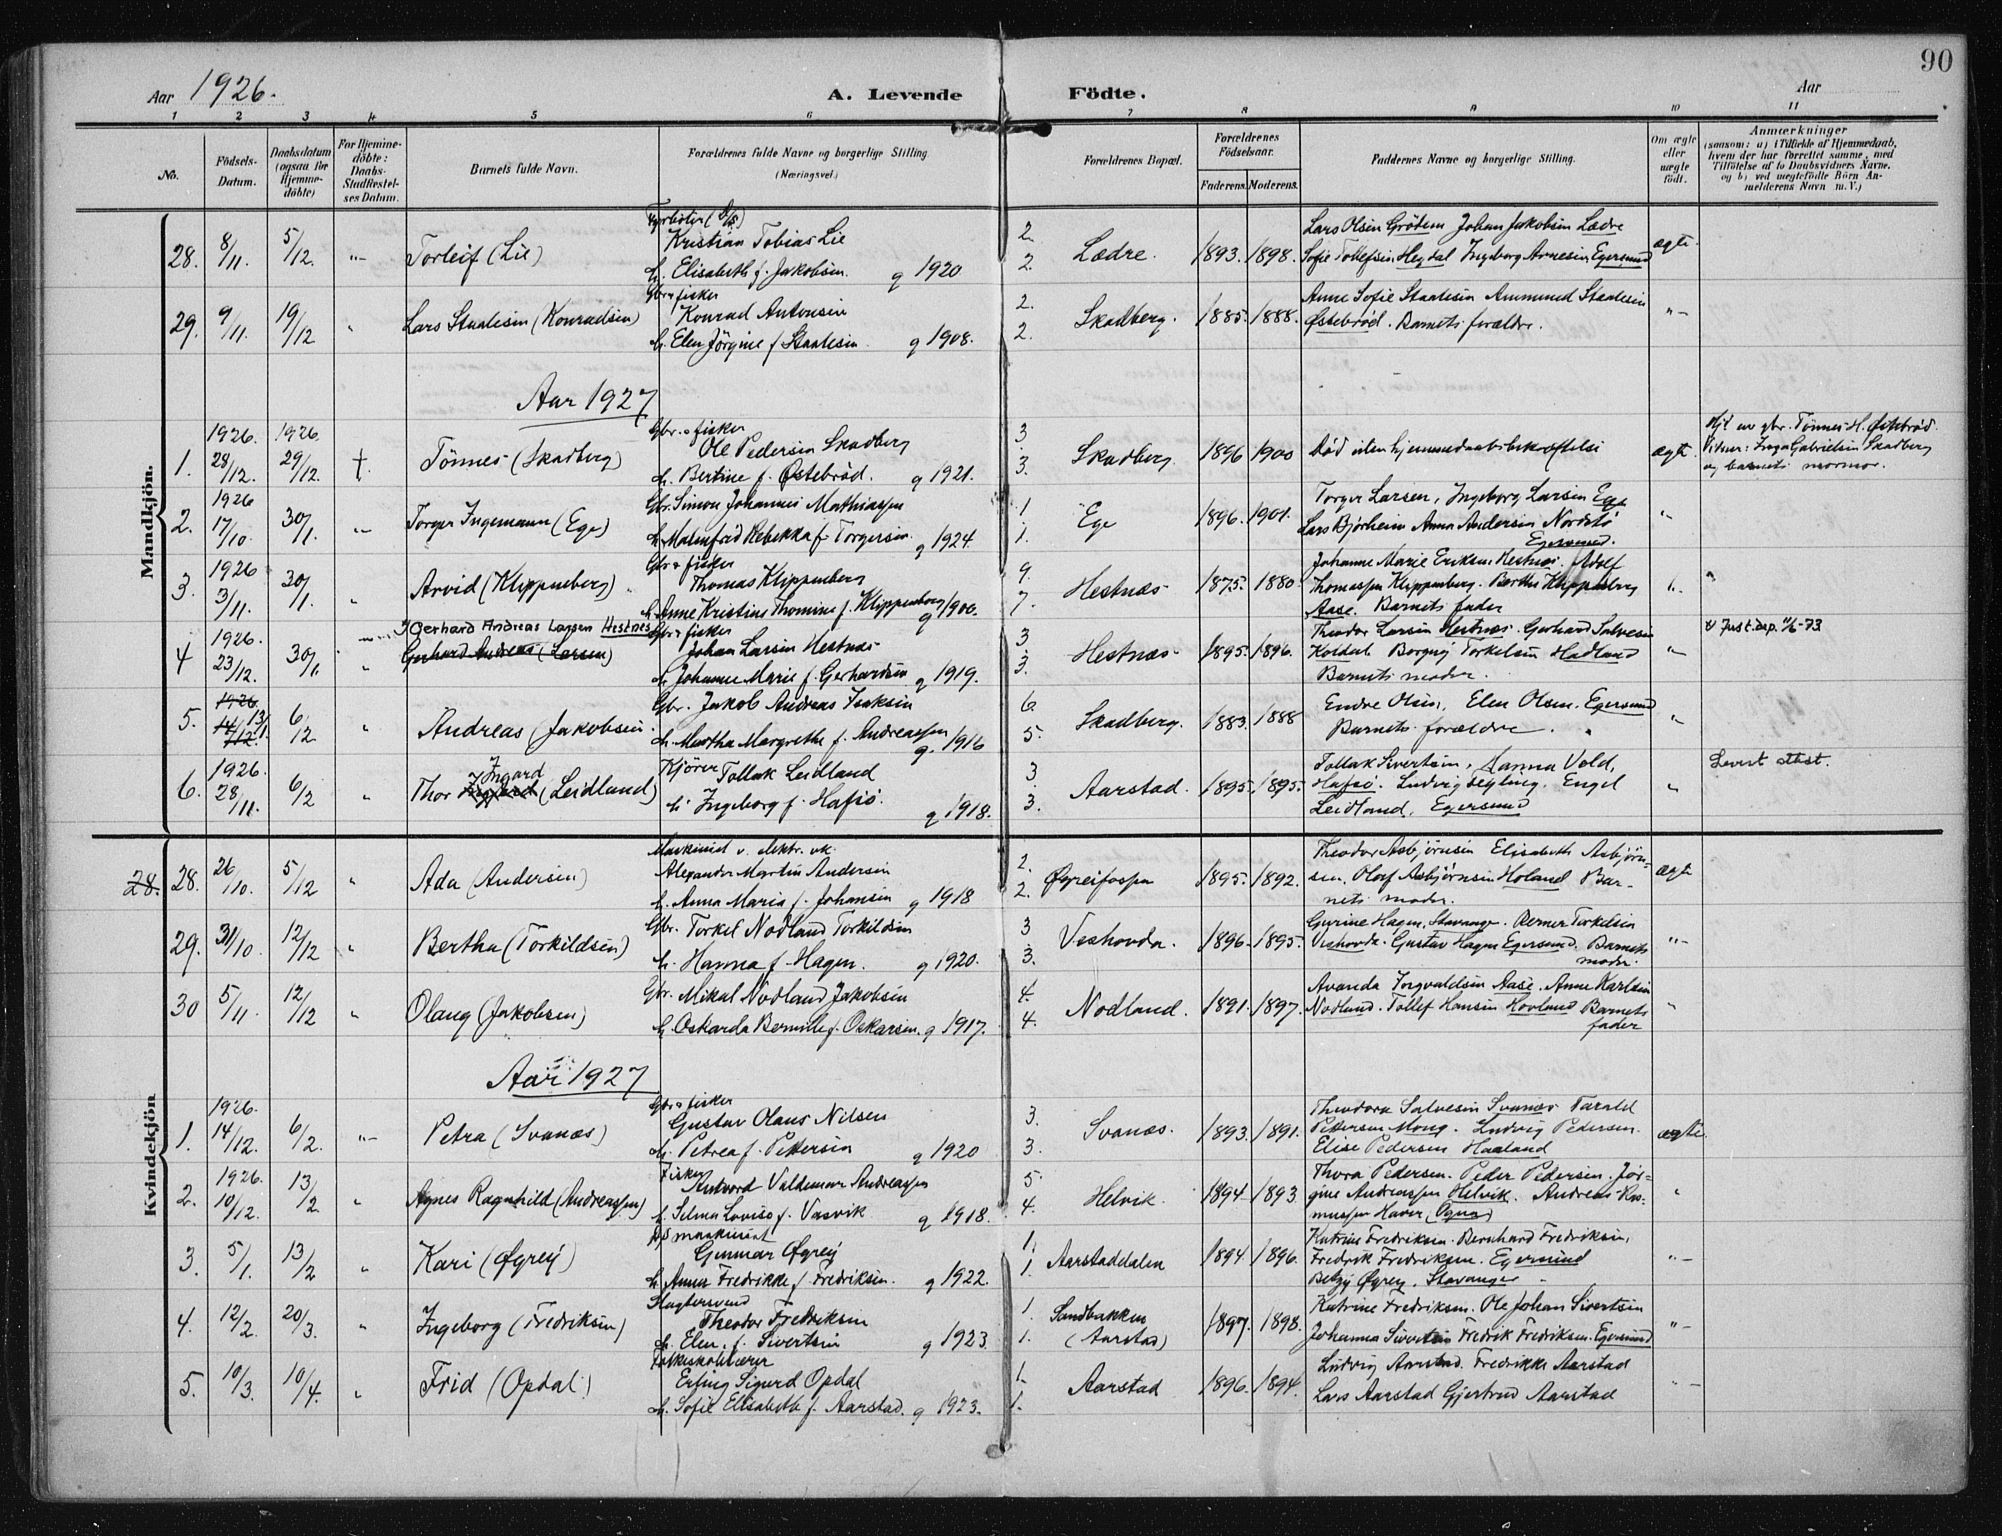 90
Aar 1926. A. Levende Födte. Aar
1 2 3 4 5 6 7 8 9 10 11
No. Födsels-Datum. Daabsdatum (ogsaa for Hjemme-döbte) For Hjemme-döbte: Daabs-Stadfæstel-ses Datum. Barnets fulde Navn. Forældrenes fulde Navne og borgerlige Stilling (Næringsvei.) Forældrenes Bopæl. Forældrenes Födselsaar. Faderens. Moderens. Faddernes Navne og borgerlige Stilling. Om ægte eller uægte födt. Anmærkninger (saasom: a) i Tilfælde af Hjemmedaab, hvem der har forrettet samme, med Tilföielse af to Daabsvidners Navne, og b) ved uægtefödte Börn An-melderens Navn m. V.)
Mandkjön.
28. 8/11. 5/12. "- Torleif (Lie)
Kristian Tobias Lie
h. Elisabeth f. Jakobsen. g 1920
2. 2. Lædre. 1893. 1898.
Lars Olsen Grötem Johan Jakobsen Lædre
Sofie Tollefsen Hegdal Ingeborg Arnesen Egersund
ægte.
29. 9/11. 19/12 " Lars Staalesen (Konradsen)
Gbr. & fisker
Konrad Antonsen
h. Elen Jörgine f Staalesen. g 1908.
2. 2. Skadberg. 1885. 1888.
Anne Sofie Staalesen Ammund Staalesen
Østebröd. Barnets forældre.
"-
Aar 1927
1. 1926. 28/12. 1926. 29/12. †. Tönnes (Skadberg)
Gbr. & fisker
Ole Pedersen Skadberg
h. Bertine f. Østebröd. g 1921.
3. 3. Skadberg 1896 1900
Död uten hjemmedaabsbekræftelse
ægte.
Hjd av gbr. Tönnes H. Østebröd.
Vidner: Inga Gabrielsen Skadberg
og barnets mormor.
2. 1926 17/10. 30/1. "- Torger Ingemann (Ege)
Gbr. Simon Johannes Mathiassen
h. Malmfrid Rebekka f Torgersen. g 1924.
1 1. Ege 1896. 1901.
Torger Larsen, Ingeborg Larsen Ege
Lars Bjørheim Anna Andersen Nordstö
Egersund.
"
3. 1926 3/11. 30/1. " Arvid (Klippenberg)
Gbr & fisker
Thomas Klippenberg
h. Anne Kristine Thomine f. Klippenberg g 1900.
9. 7. Hestnæs 1875. 1880.
Johanne Marie Eriksen Hestnæs. Adolf
Thomassen Klippenberg. Berthe Klippenberg
Aase. Barnets fader
"
4 1926. 23/12. 30/1. " Gerhard Andreas Larsen Hestnes
Gerhard Andreas (Larsen)
Gbr & fisker
Johan Larsen Hestnæs
h. Johanne Marie f. Gerhardsen g 1919.
3. 3. Hestnæs 1895. 1896.
Theodor Larsen Hestnæs. Gerhard Salvesen
Koldal Borgny Torkelsen Hadland
Barnets moder.
"
Just.dep. 1/6-73
5. 1926. 14/12. 13/1. 6/2 " Andreas (Jakobsen.
Gbr. Jakob Andreas Isaksen
h. Martha Margrethe f. Andreassen g. 1916
6 5. Skadberg. 1883. 1888
Endre Olsen, Elen Olsen. Egersund
Barnets forældre.
"
6. 1926. 28/11. 6/2 " Thor Ingard (Leidland)
Kjörer Tollak Leidland
h. Ingeborg f. Hafsö. g 1918.
3. 3. Aarstad. 1895. 1895.
Tollak Sivertsen, Hanna Vold,
Hafsö. Ludvig Segling. Engel
Leidland, Egersund
"
Levert attest.
Kvindekjön
28. 28. 26/10. 5/12 " Ada (Andersen)
Maskinist v. elektr. vk.
Alexander Martin Andersen
h. Anna Maria f. Johansen g 1918
2. 2. Øgreifossen 1895. 1892.
Theodor Asbjörnsen Elisabeth Asbjörn-
sen. Olaf Asbjörnsen Holand Bar-
nets moder.
ægte
29. 31/10. 12/12 " Bertha (Torkildsen)
Gbr. Torkel Nodland Torkildsen
h. Hanna f. Hagen. g 1920.
3 3. Veshovda. 1896. 1895.
Gurine Hagen, Stavanger. Verner Torkelsen
Veshovda. Gustav Hagen Egersund. Barnets
moder.
"-
30 5/11. 12/12 " Olaug (Jakobsen)
Gbr. Mikal Nodland Jakobsen
h. Oskarda Bernille f. Oskarsen. g 1917.
4. 4. Nodland. 1891. 1897.
Avanda Torgvaldsen Aase. Anne Karlsen
Nodland. Tollef Hansen Hovland Barnets
fader
"
Aar 1927
1. 1926. 14/12. 6/2. "- Petra (Svanæs)
Gbr & fisker
Gustav Olaus Nilsen
h. Petrea f. Pettersen g 1920
3. 3. Svanæs. 1893. 1891.
Theodora Salvesen Svanæs Tarald
Pettersen Mong. Ludvig Pedersen.
Elise Pedersen Haaland
ægte.
2. 1926. 10/12. 13/2 " Agnes Ragnhild (Andreassen)
Fisker
Antvord Valdemar Andreassen
h. Selma Lovise f. Vasvik g 1918.
5 4. Helvik. 1894. 1893
Thora Pedersen. Peder Pedersen. Jör-
gine Andreassen Helvik. Andreas Ras-
mussen Haver (Ogna)
"
3. 5/1. 13/2 " Kari (Øgrey)
D/S maskinist
Gunnar Øgrey
h. Anna Fredrikke f. Fredriksen. g 1922.
1. 1 Aarstaddalen 1894 1896.
Katrine Fredriksen. Bernhard Fredriksen,
Fredrik Fredriksen. Egersund
Betzy Øgrey, Stavanger
"-
4. 12/2. 20/3. " Ingeborg (Fredriksen)
Slagtersvend
Theodor Fredriksen
h. Elen. f. Sivertsen g 1923
1. 1. Sandbakken (Aarstad) 1897. 1898.
Katrine Fredriksen. Ole Johan Sivertsen
Johanna Sivertsen Fredrik Fredriksen. Egersund
"-
5. 10/3. 10/4. " Frid (Opdal)
Folkeskolelærer
Erling Sigurd Opdal
h. Sofie Elisabeth f. Aarstad. g 1923.
1. 1. Aarstad 1896. 1894.
Ludvig Aarstad. Fredrikke Aarstad
Lars Aarstad Gjertrud Aarstad
"-